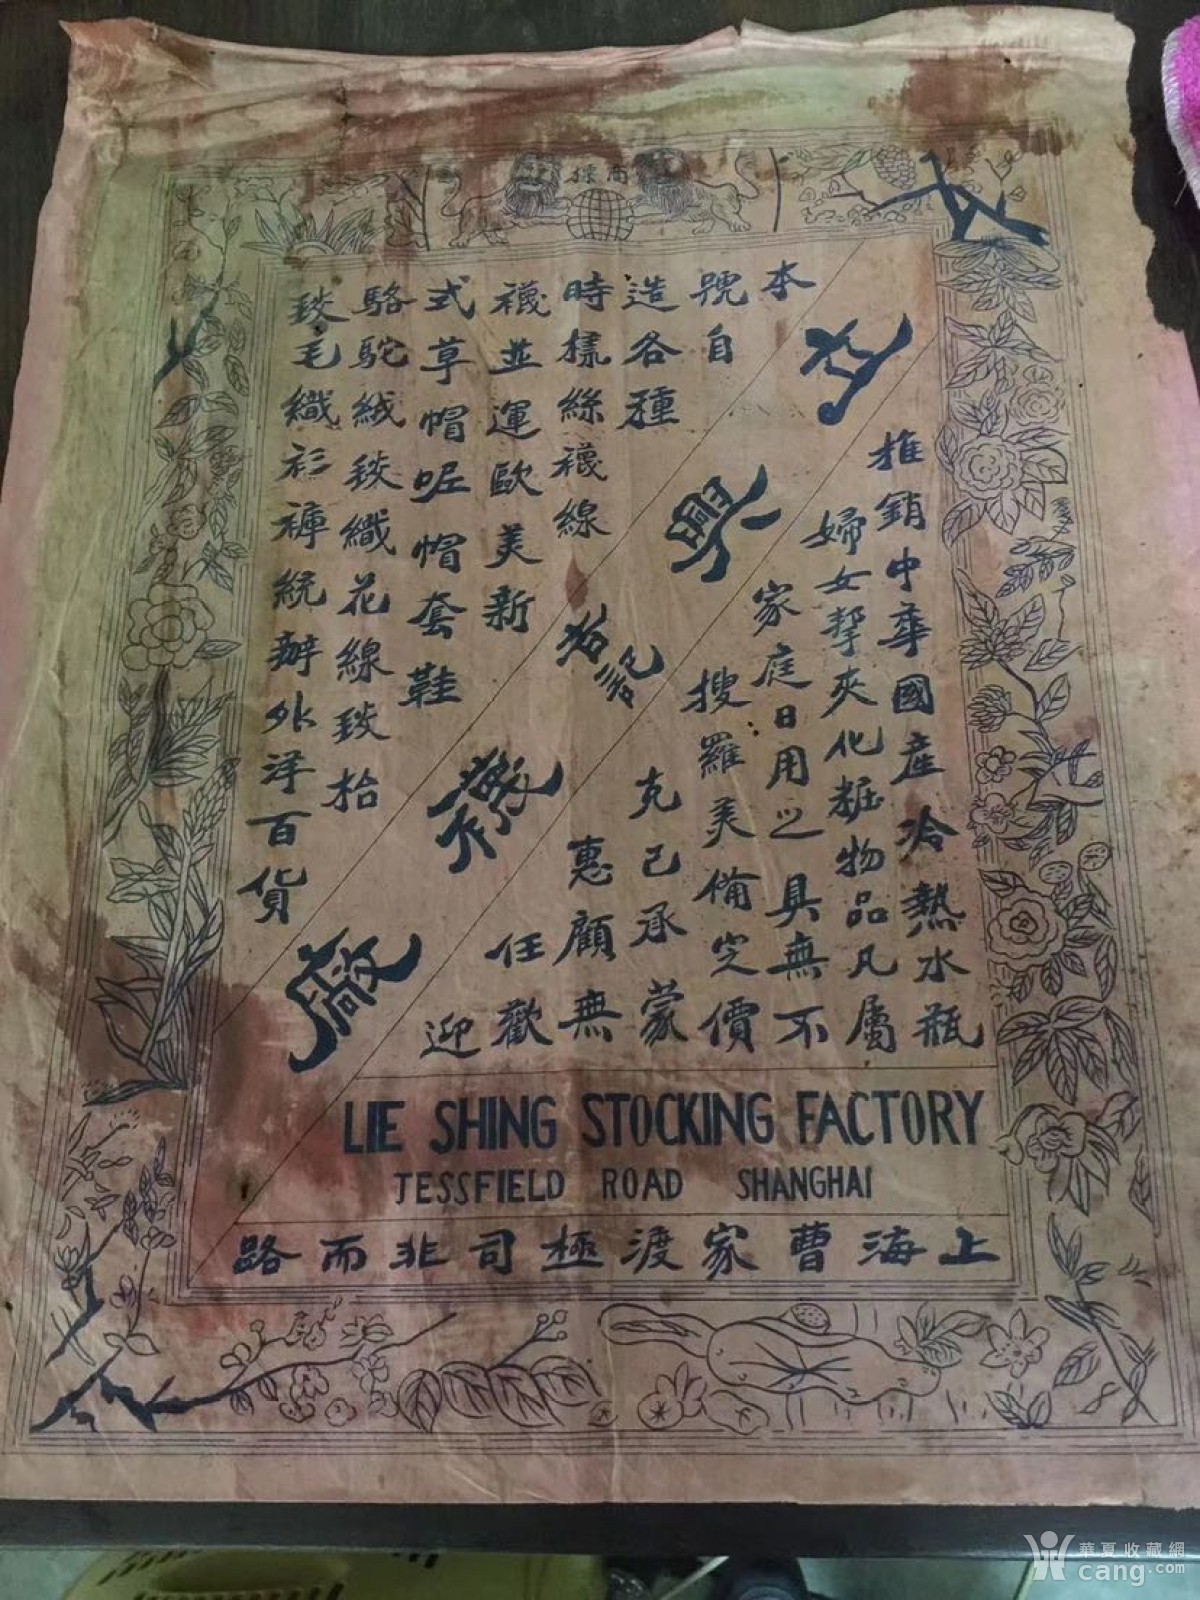 商標
本
號自
造各種
時樣絲襪線
襪並運歐美新
式草帽呢帽套鞋
駱駝絨毯織花線毯拾
毯毛織衫褲統辦外洋百貨
興
記
襪廠
推銷中華國產冷熱水瓶
婦女挈夾化粧物品凡屬
家庭日用之具無不
搜羅美備定價
克己承蒙
惠顧無
任歡
迎
LIE SHING STOCKING FACTORY
JESSFIELD ROAD SHANGHAI
上海曹家渡極司非而路
華夏收藏網
cang.com